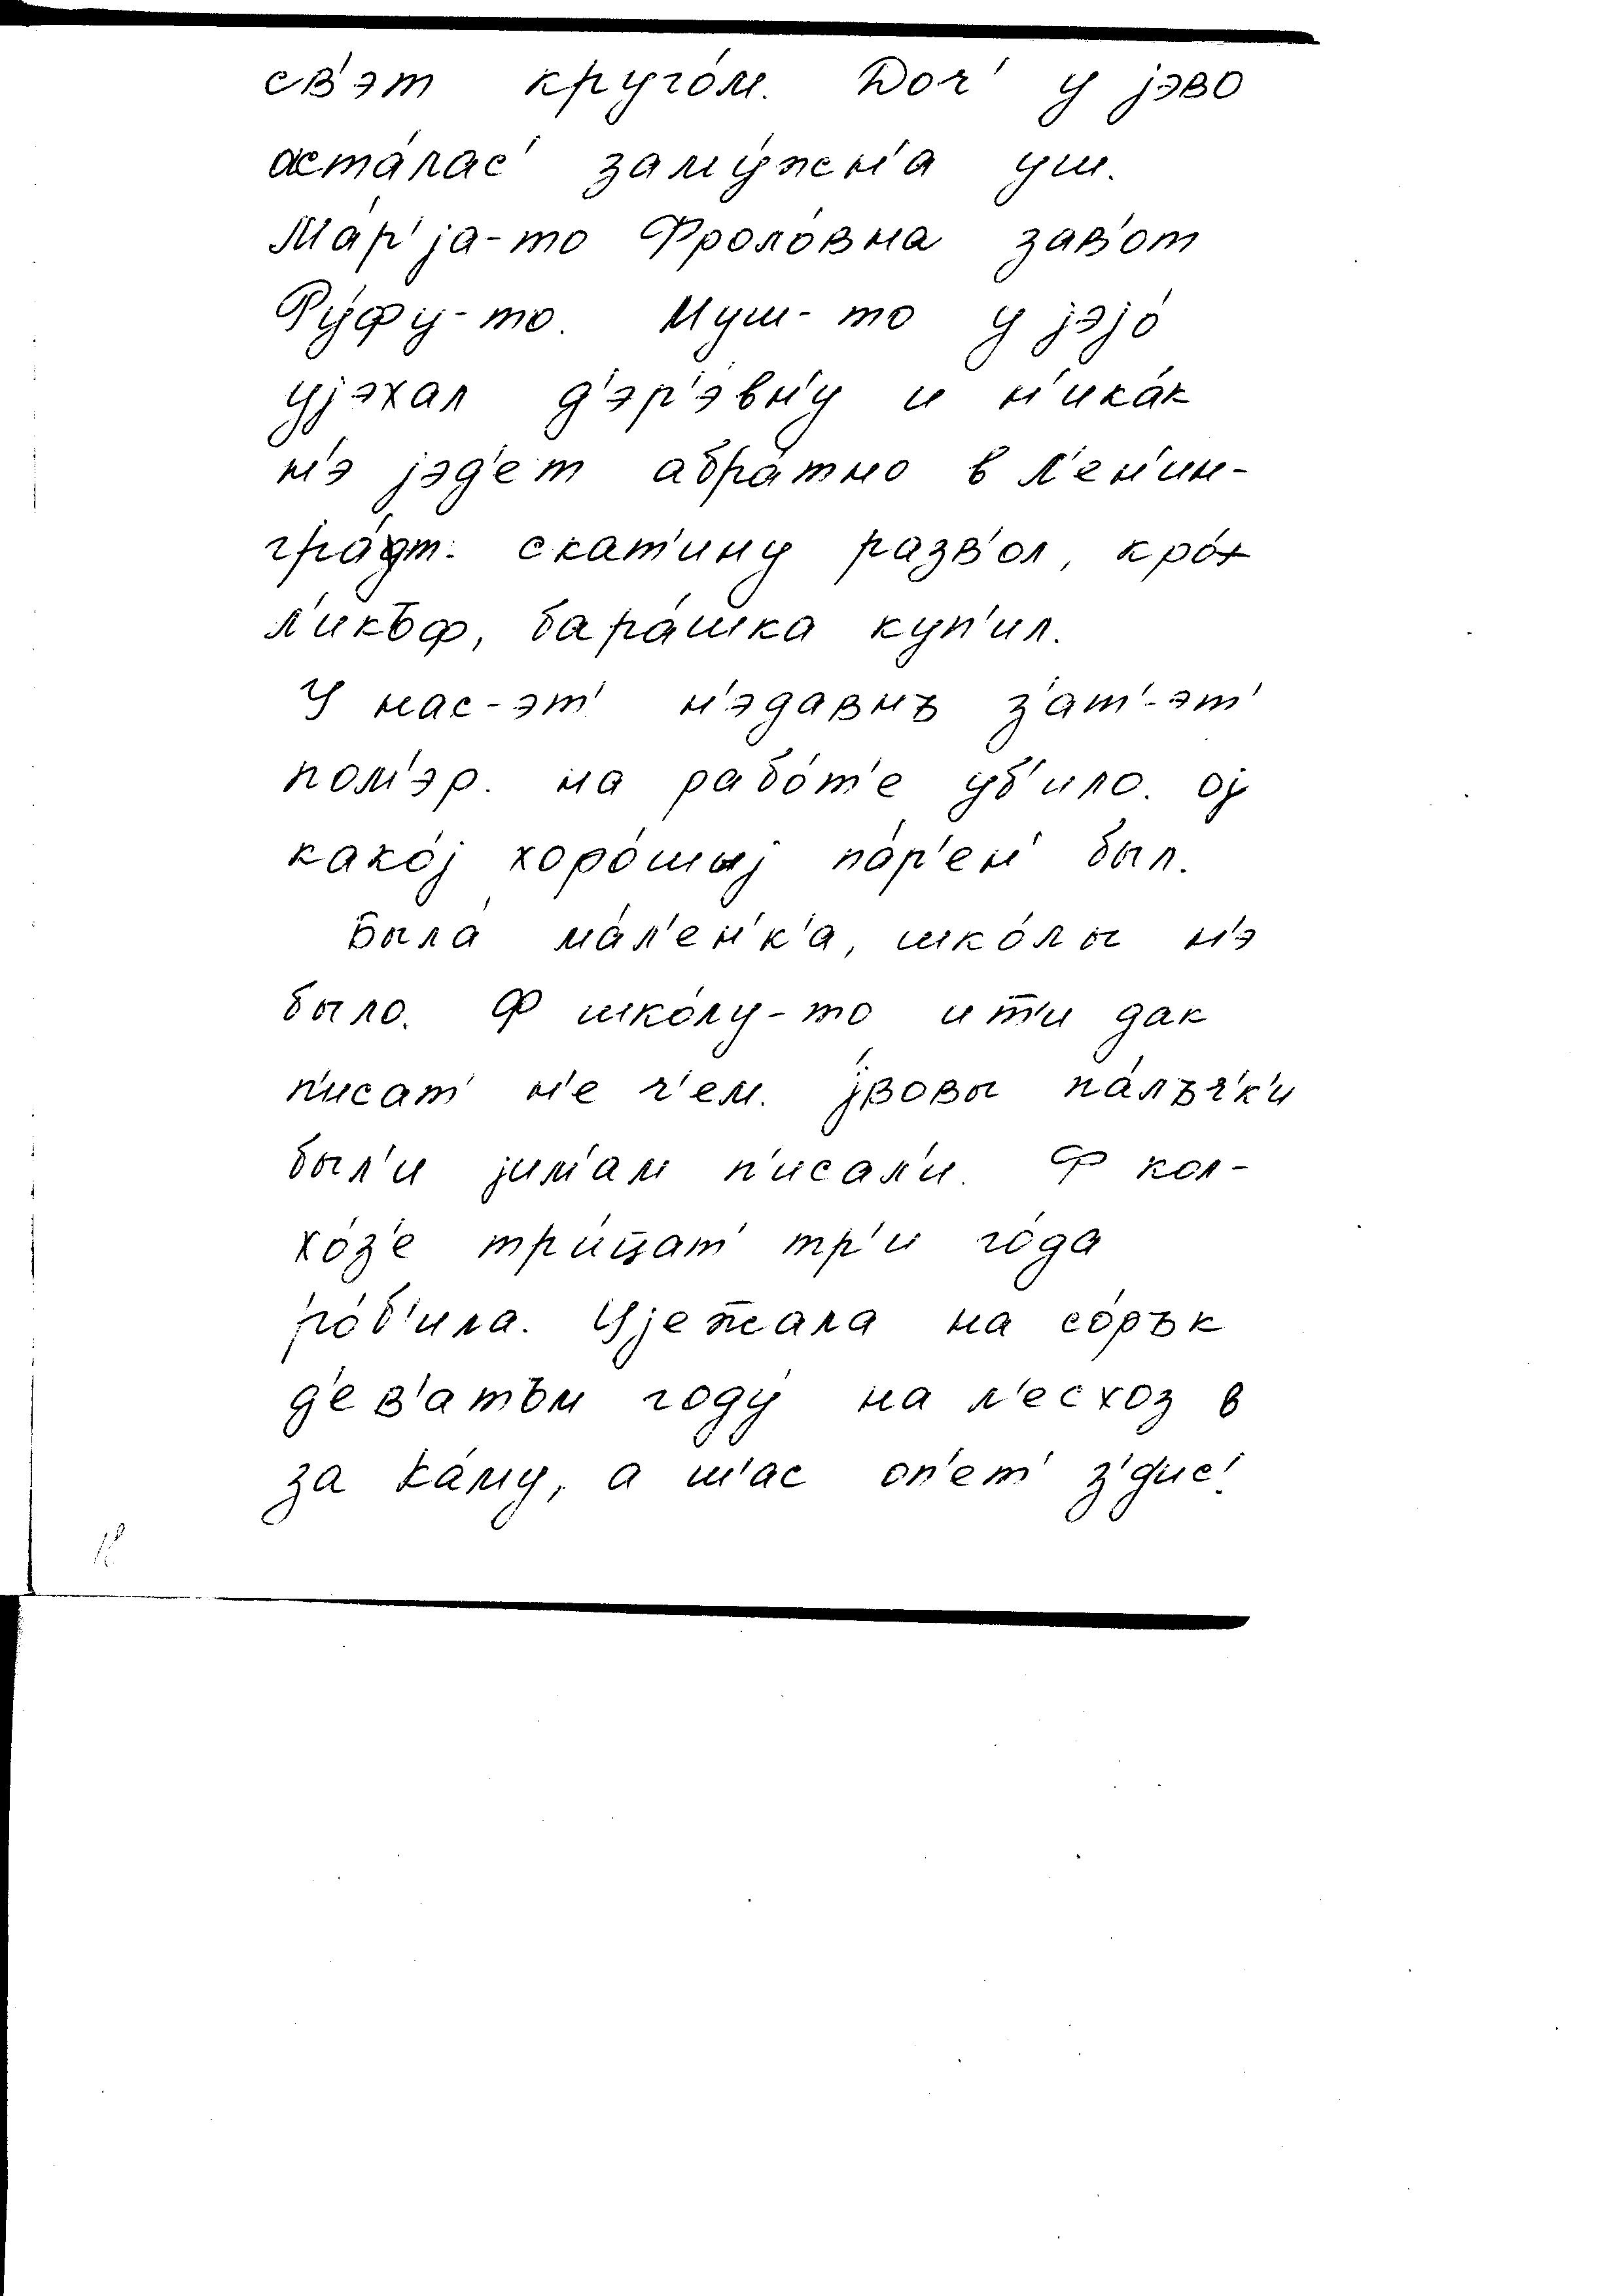 св'эт кругóм. Доч' у јэвó
астáлас' замýжн'а уш.
Мáр'ја-то Фролóвна зав'от
Рýфу-то. Муш-то у јэјó
ујэхал д'эр'эвн'у и н'икáк
н'э јэд'ет абрáтно в Л'ен'ин-
грáт. скат'ину разв'ол, крó
л'икъф, барáшка куп'ил.
У нас-эт' н'эдавнъ з'ат'-эт'
пом'эр. на рабóт'е уб'ило. ој
какóј хорóшыј пáр'ен' был.
Былá мáл'ен'к'а, шкóлы н'э
было. Ф шкóлу-то ит̄'и дак
п'исат' н'е ч'ем. јвовы пáлъч'к'и
был'и јим'ам п'исал'и. Ф кол-
хóз'е три́ц̄ат' тр'и гóда
рóб'ила. Ује̄жала на сóрък
д'ев'атъм годý на л'есхоз в
за Кáму, а ш'ас оп'ет' з'д'ис'.